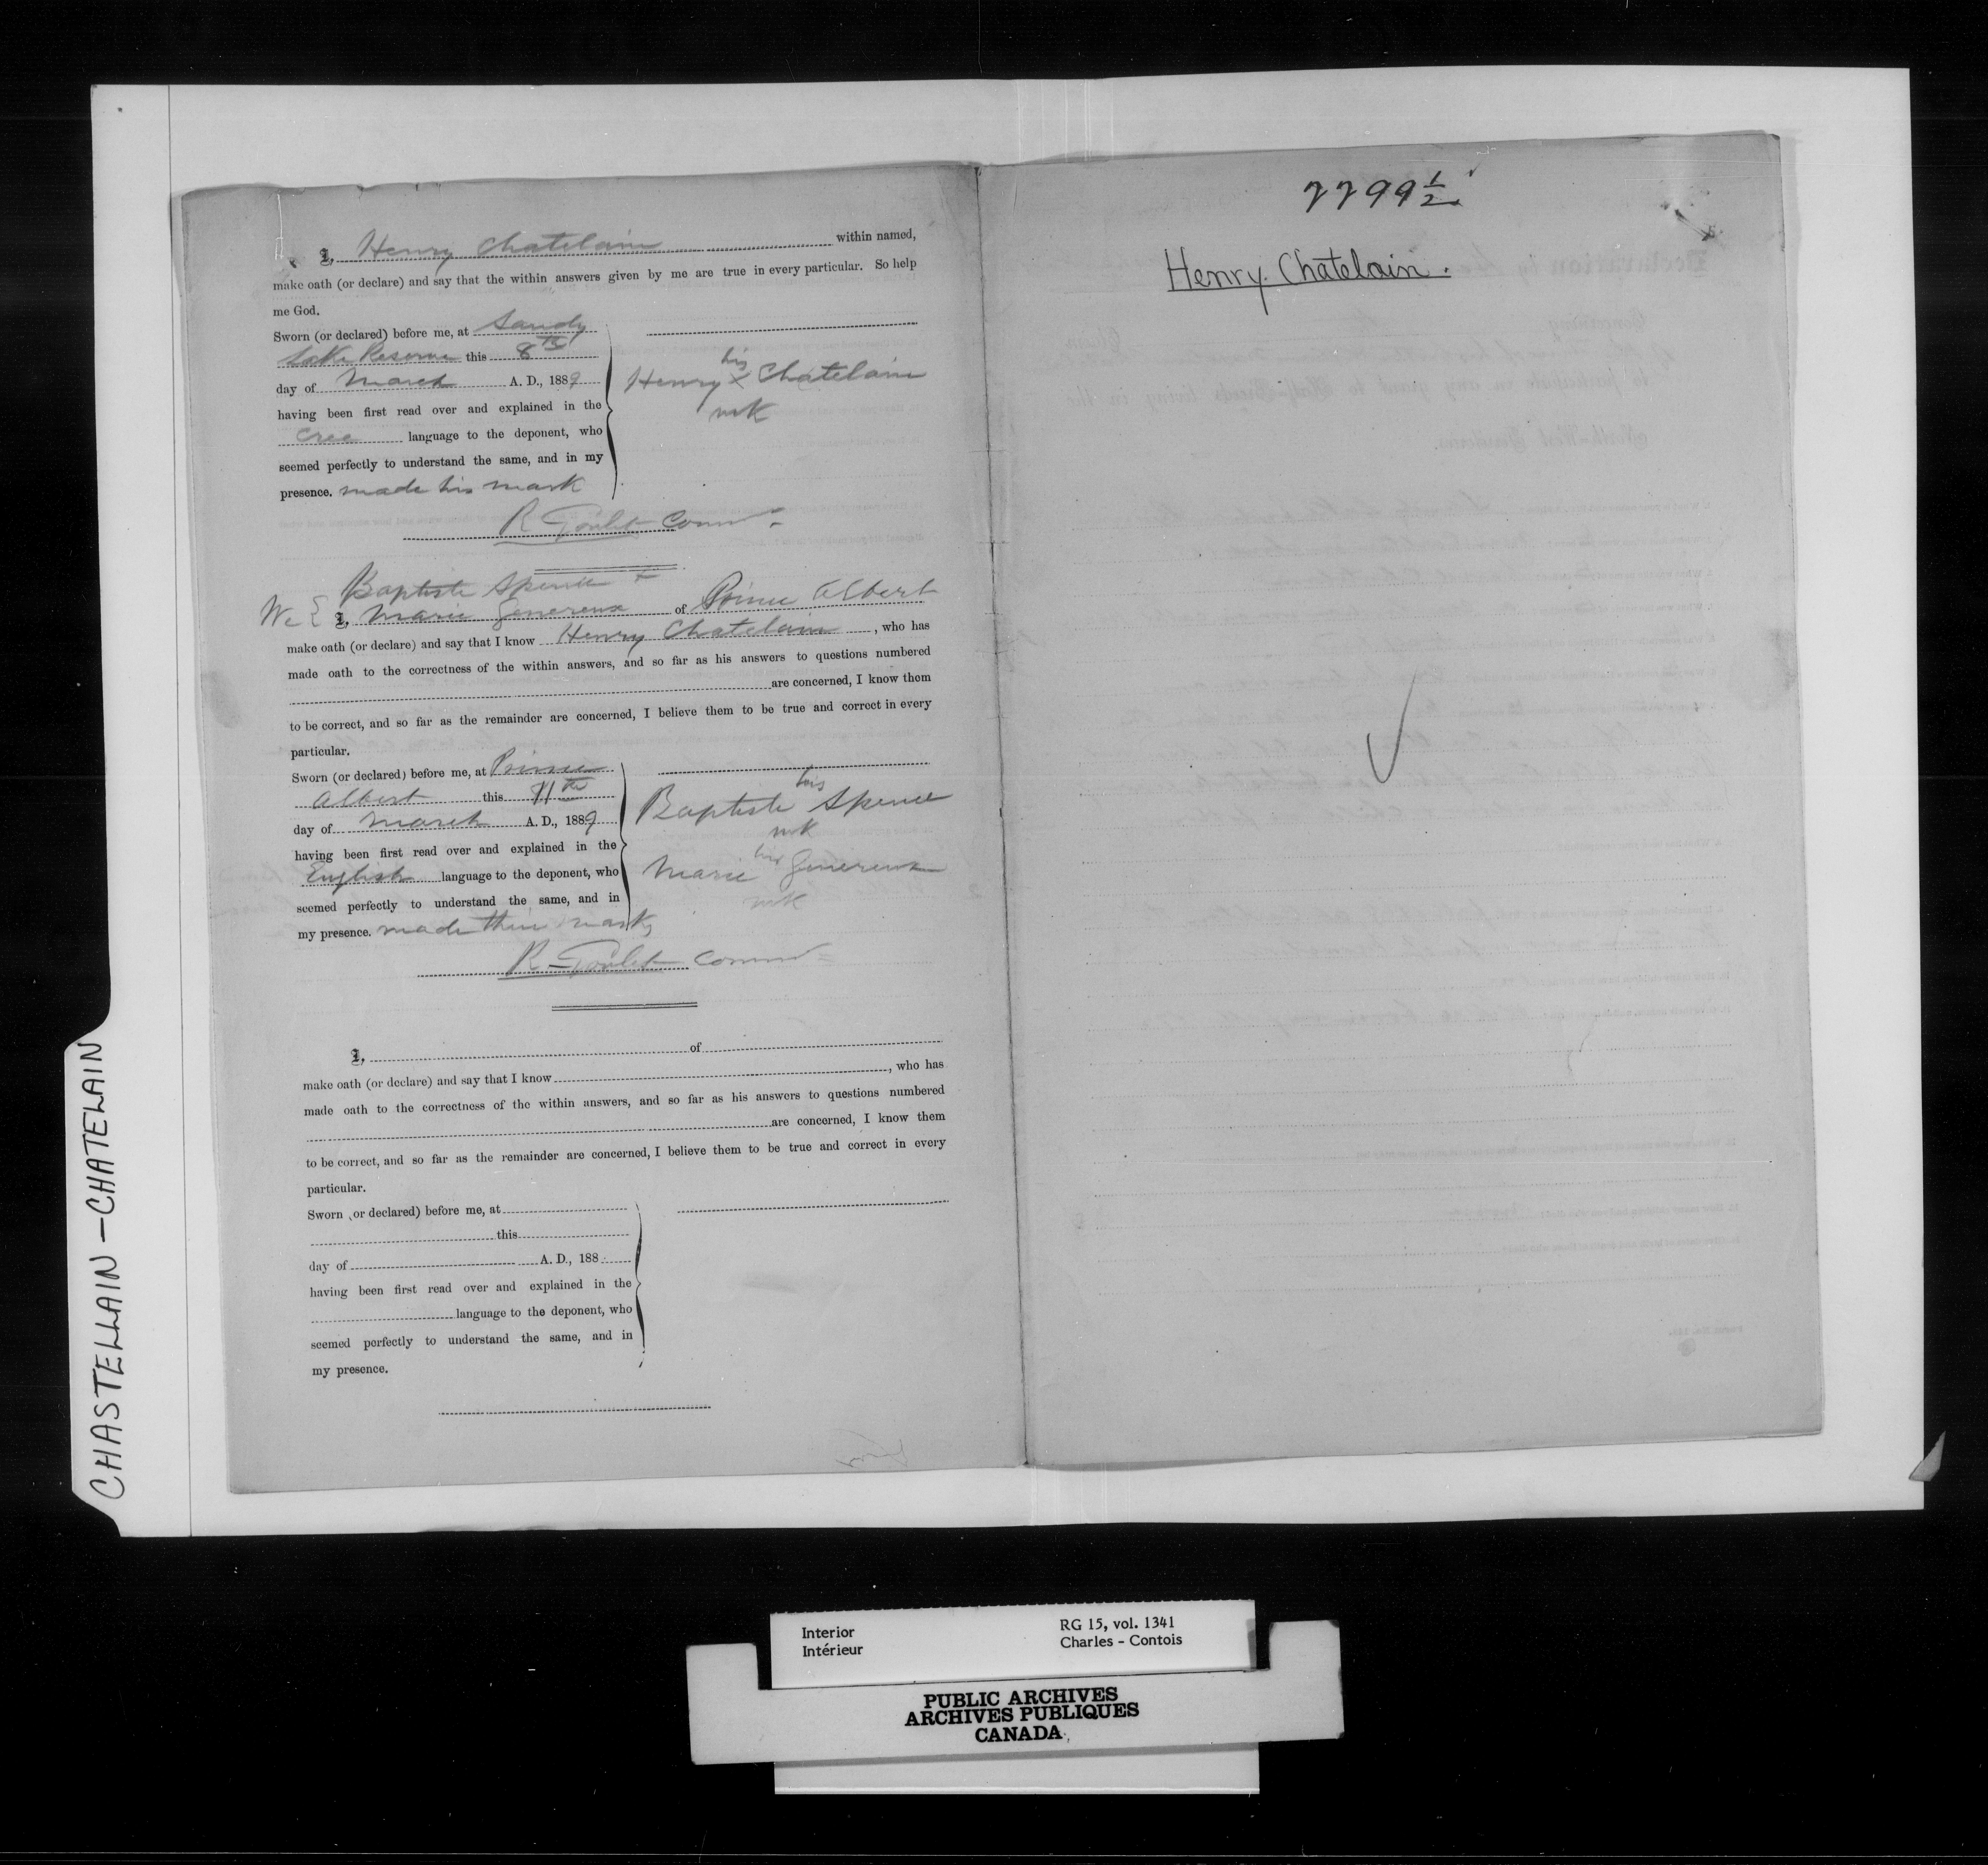 I, Henry Chatelain within named,
make oath (or declare) and say that the within answers given by me are true in every particular. So help
me God.
Sworn (or declared) before me, at Sandy
Lake Reserve this 8th
day of March A. D., 1889
having been first read over and explained in the
Cree language to the deponent, who
seemed perfectly to understand the same, and in my
presence. made his mark
his
Henry x Chatelain
mk
R Goulet Commr
Baptiste Spence +
We { I, Marie Genereux of Prince Albert
make oath (or declare) and say that I know Henry Chatelain, who has
made oath to the correctness of the within answers, and so far as his answers to questions numbered
are concerned, I know them
to be correct, and so far as the remainder are concerned, I believe them to be true and correct in every
particular.
Sworn (or declared) before me, at Prince
Albert this 11th
day of March A. D., 1889
having been first read over and explained in the
English language to the deponent, who
seemed perfectly to understand the same, and in
my presence. made their marks
his
Baptiste Spence
mk
Marie Genereux
mk
R Goulet Commr
I, of
make oath (or declare) and say that I know , who has
made oath to the correctness of the within answers, and so far as his answers to questions numbered
are concerned, I know them
to be correct, and so far as the remainder are concerned, I believe them to be true and correct in every
particular.
Sworn (or declared) before me, at
this
day of A. D., 188
having been first read over and explained in the
language to the deponent, who
seemed perfectly to understand the same, and in
my presence.
2299 1/2
Henry Chatelain.
CHASTELLAIN - CHATELAIN
Interior
Intérieur
RG 15, vol. 1341
Charles - Contois
PUBLIC ARCHIVES
ARCHIVES PUBLIQUES
CANADA